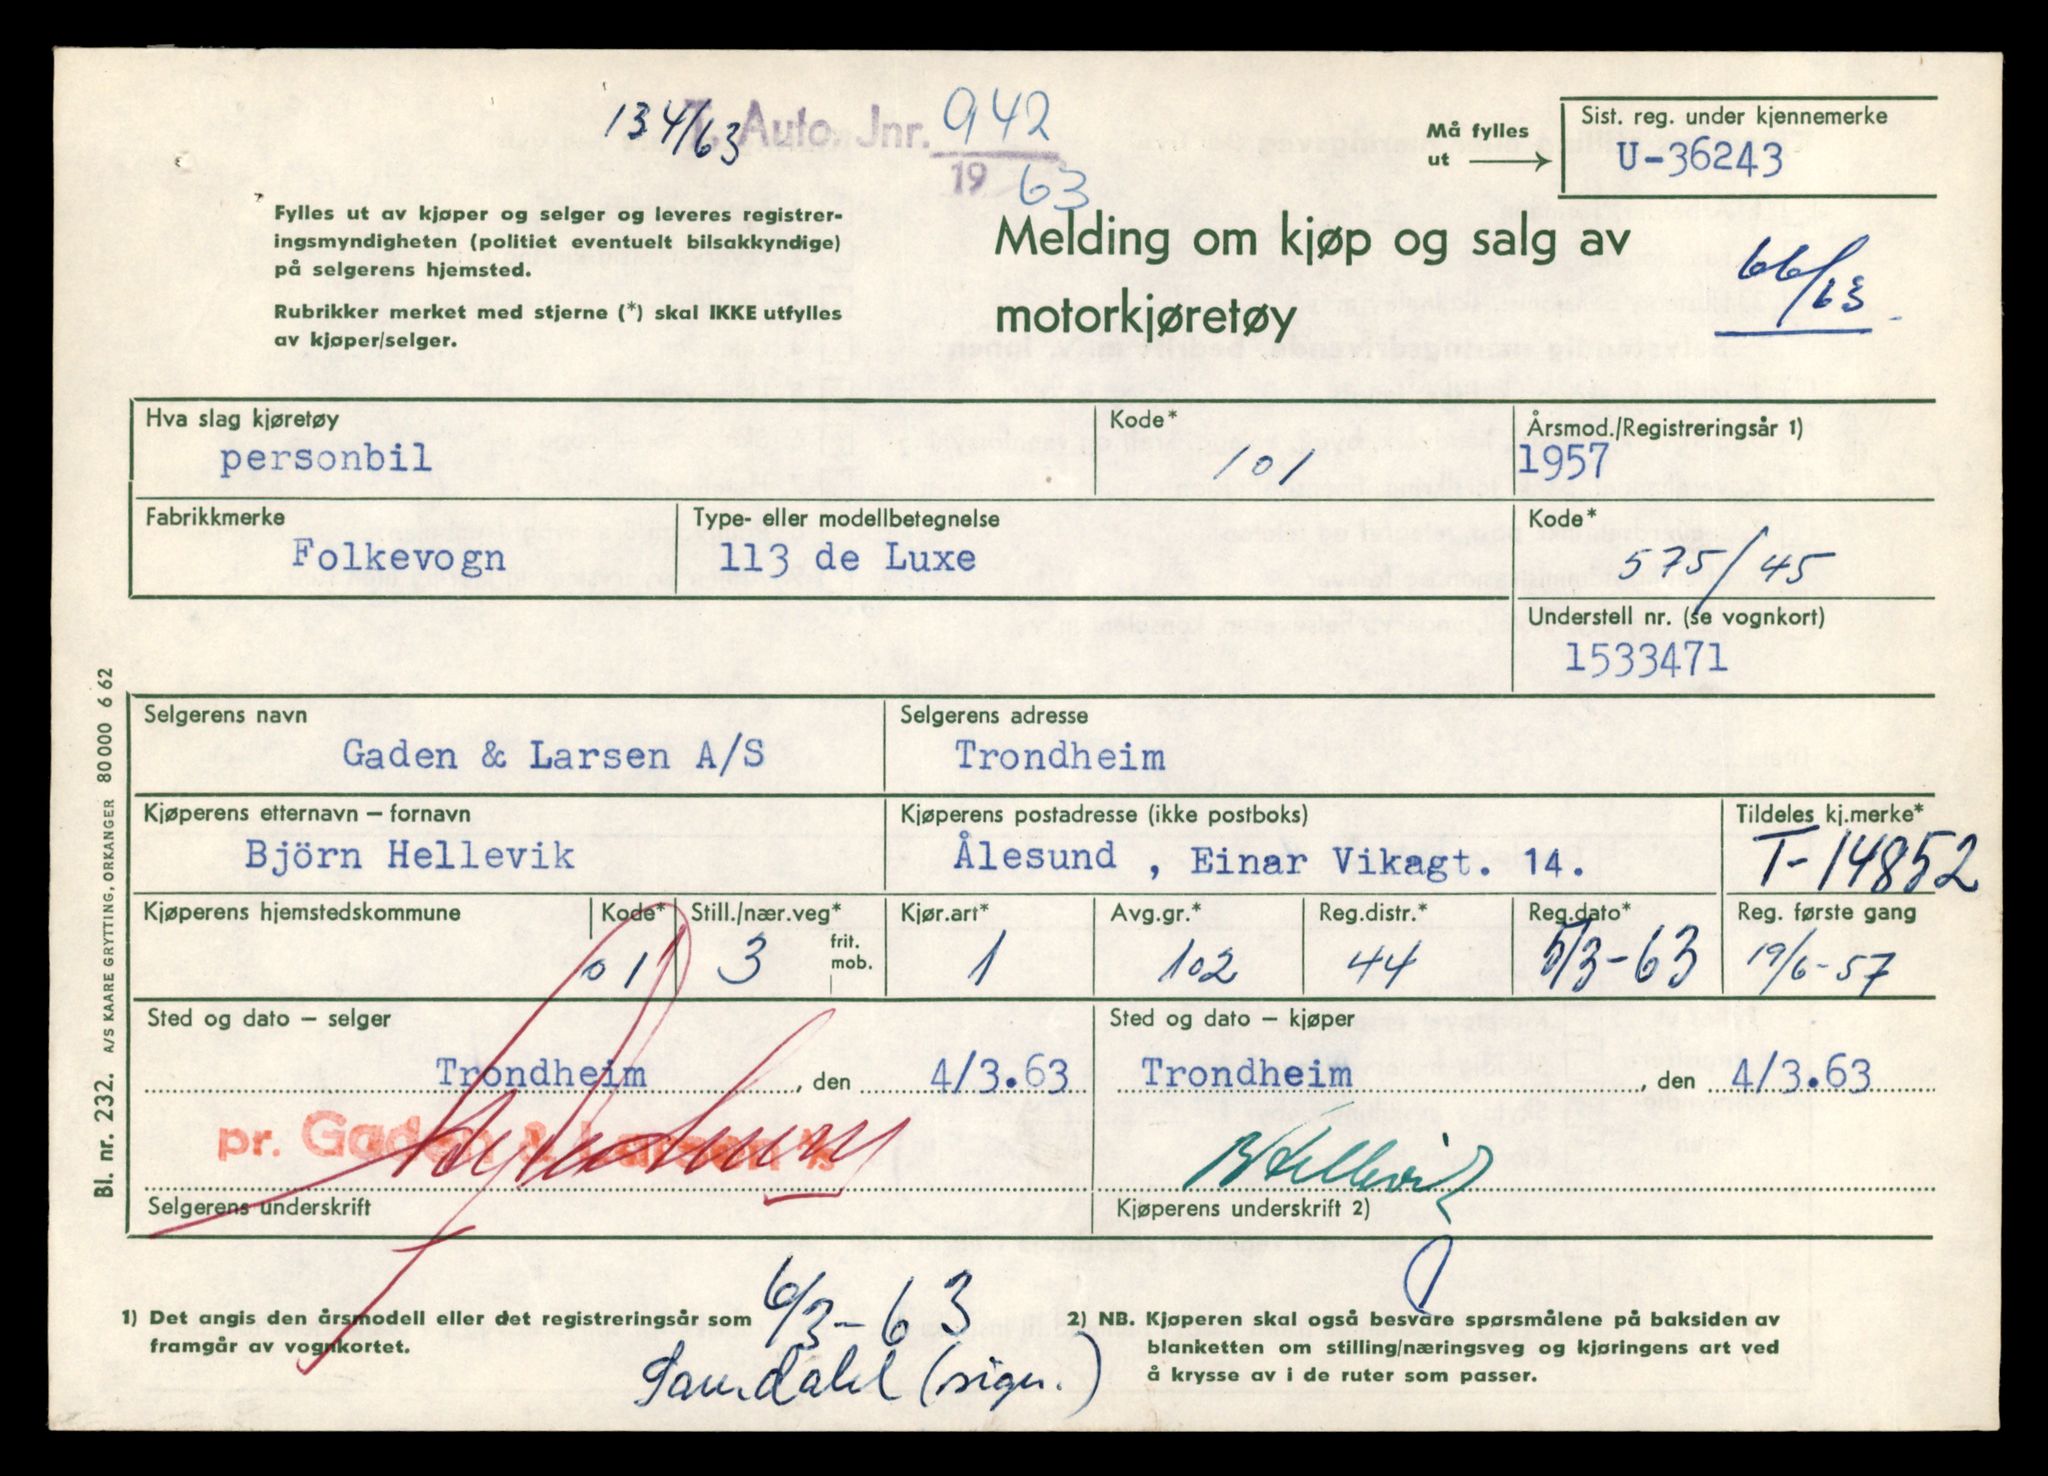 134/63
T. Auto. Jnr. 942
19 63
Må fylles
ut
Sist. reg. under kjennemerke
U-36243
Fylles ut av kjøper og selger og leveres registrer-
ingsmyndigheten (politiet eventuelt bilsakkyndige)
på selgerens hjemsted.
Rubrikker merket med stjerne (*) skal IKKE utfylles
av kjøper/selger.
Melding om kjøp og salg av
motorkjøretøy
66/63
Hva slag kjøretøy
personbil
Kode*
101
Årsmod./Registreringsår 1)
1957
Fabrikkmerke
Folkevogn
Type- eller modellbetegnelse
113 de Luxe
Kode*
575/45
Understell nr. (se vognkort)
1533471
Selgerens navn
Gaden & Larsen A/S
Selgerens adresse
Trondheim
Kjøperens etternavn – fornavn
Björn Hellevik
Kjøperens postadresse (ikke postboks)
Ålesund , Einar Vikagt. 14.
Tildeles kj.merke*
T-14852
Kjøperens hjemstedskommune
Kode*
01
Still./nær.veg*
3
frit.
mob.
Kjør.art*
1
Avg.gr.*
102
Reg.distr.*
44
Reg.dato*
5/3-63
Reg. første gang
19/6-57
Sted og dato – selger
Trondheim , den 4/3.63
Sted og dato – kjøper
Trondheim , den 4/3.63
pr. Gaden & Larsen A/S
B Hellevik
Selgerens underskrift
Kjøperens underskrift 2)
1) Det angis den årsmodell eller det registreringsår som
framgår av vognkortet.
6/3-63
Saurdahl (sign.)
2) NB. Kjøperen skal også besvare spørsmålene på baksiden av
blanketten om stilling/næringsveg og kjøringens art ved
å krysse av i de ruter som passer.
Bl. nr. 232. A/S KAARE GRYTTING, ORKANGER 80 000 6 62